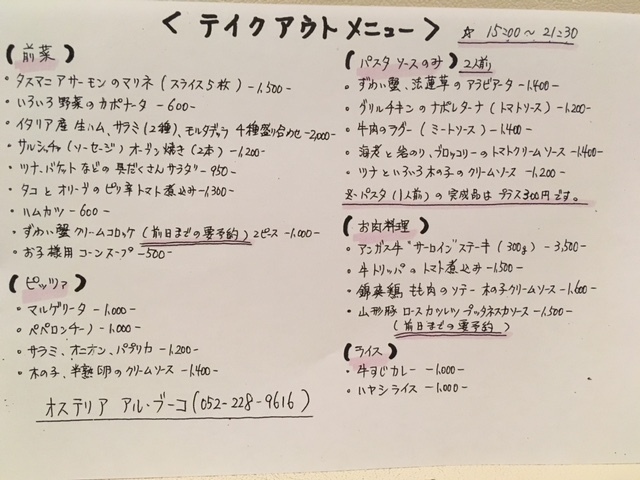 ＜テイクアウトメニュー＞ ☆ 15:00～21:30
【前菜】
・タスマニアサーモンのマリネ(スライス5枚)-1,500-
・いろいろ野菜のカポナータ-600-
・イタリア産 生ハム、サラミ(2種)、モルタデッラ 4種盛り合わせ-2,000-
・サルシッチャ(ソーセージ)オーブン焼き(2本)-1,200-
・ツナ、バケットなどの具だくさんサラダ-950-
・タコとオリーブのピリ辛トマト煮込み-1,300-
・ハムカツ-600-
・ずわい蟹クリームコロッケ(前日までの要予約)2ピース-1,000-
・お子様用コーンスープ-500-
【ピッツァ】
・マルゲリータ-1,000-
・ペペロンチーノ-1,000-
・サラミ、オニオン、パプリカ-1,200-
・木の子、半熟卵のクリームソース-1,400-
オステリア アル・ブーコ(052-228-9616)
【パスタソースのみ】2人前
・ずわい蟹、法蓮草のアラビアータ-1,400-
・グリルチキンのナポレターナ(トマトソース)-1,200-
・牛肉のラグー(ミートソース)-1,400-
・海老と岩のり、ブロッコリーのトマトクリームソース-1,400-
・ツナといろいろ木の子のクリームソース-1,200-
※パスタ(1人前)の完成品はプラス300円です。
【お肉料理】
・アンガス牛"サーロイン"ステーキ(300g)-3,500-
・牛トリッパのトマト煮込み-1,500-
・錦爽鶏もも肉のソテー木の子クリームソース-1,600-
・山形豚ロースカツレツプッタネスカソース-1,500-
(前日までの要予約)
【ライス】
・牛すじカレー-1,000-
・ハヤシライス-1,000-